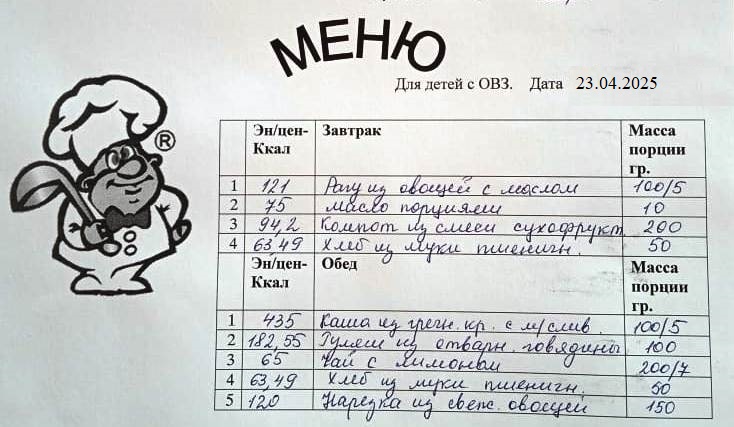 МЕНЮ
Для детей с ОВЗ. Дата 23.04.2025
®
Эн/цен-Ккал Завтрак Масса порции гр.
1 121 Рагу из овощей с маслом 100/5
2 75 Масло порциями 10
3 94,2 Компот из смеси сухофрукт 200
4 63,49 Хлеб из муки пшеничн. 50
Эн/цен-Ккал Обед Масса порции гр.
1 435 Каша из гречн. кр. с м/слив. 100/5
2 182,55 Гуляш из отварн. говядины 100
3 65 Чай с лимоном 200/7
4 63,49 Хлеб из муки пшеничн. 50
5 120 Нарезка из свеж. овощей 150